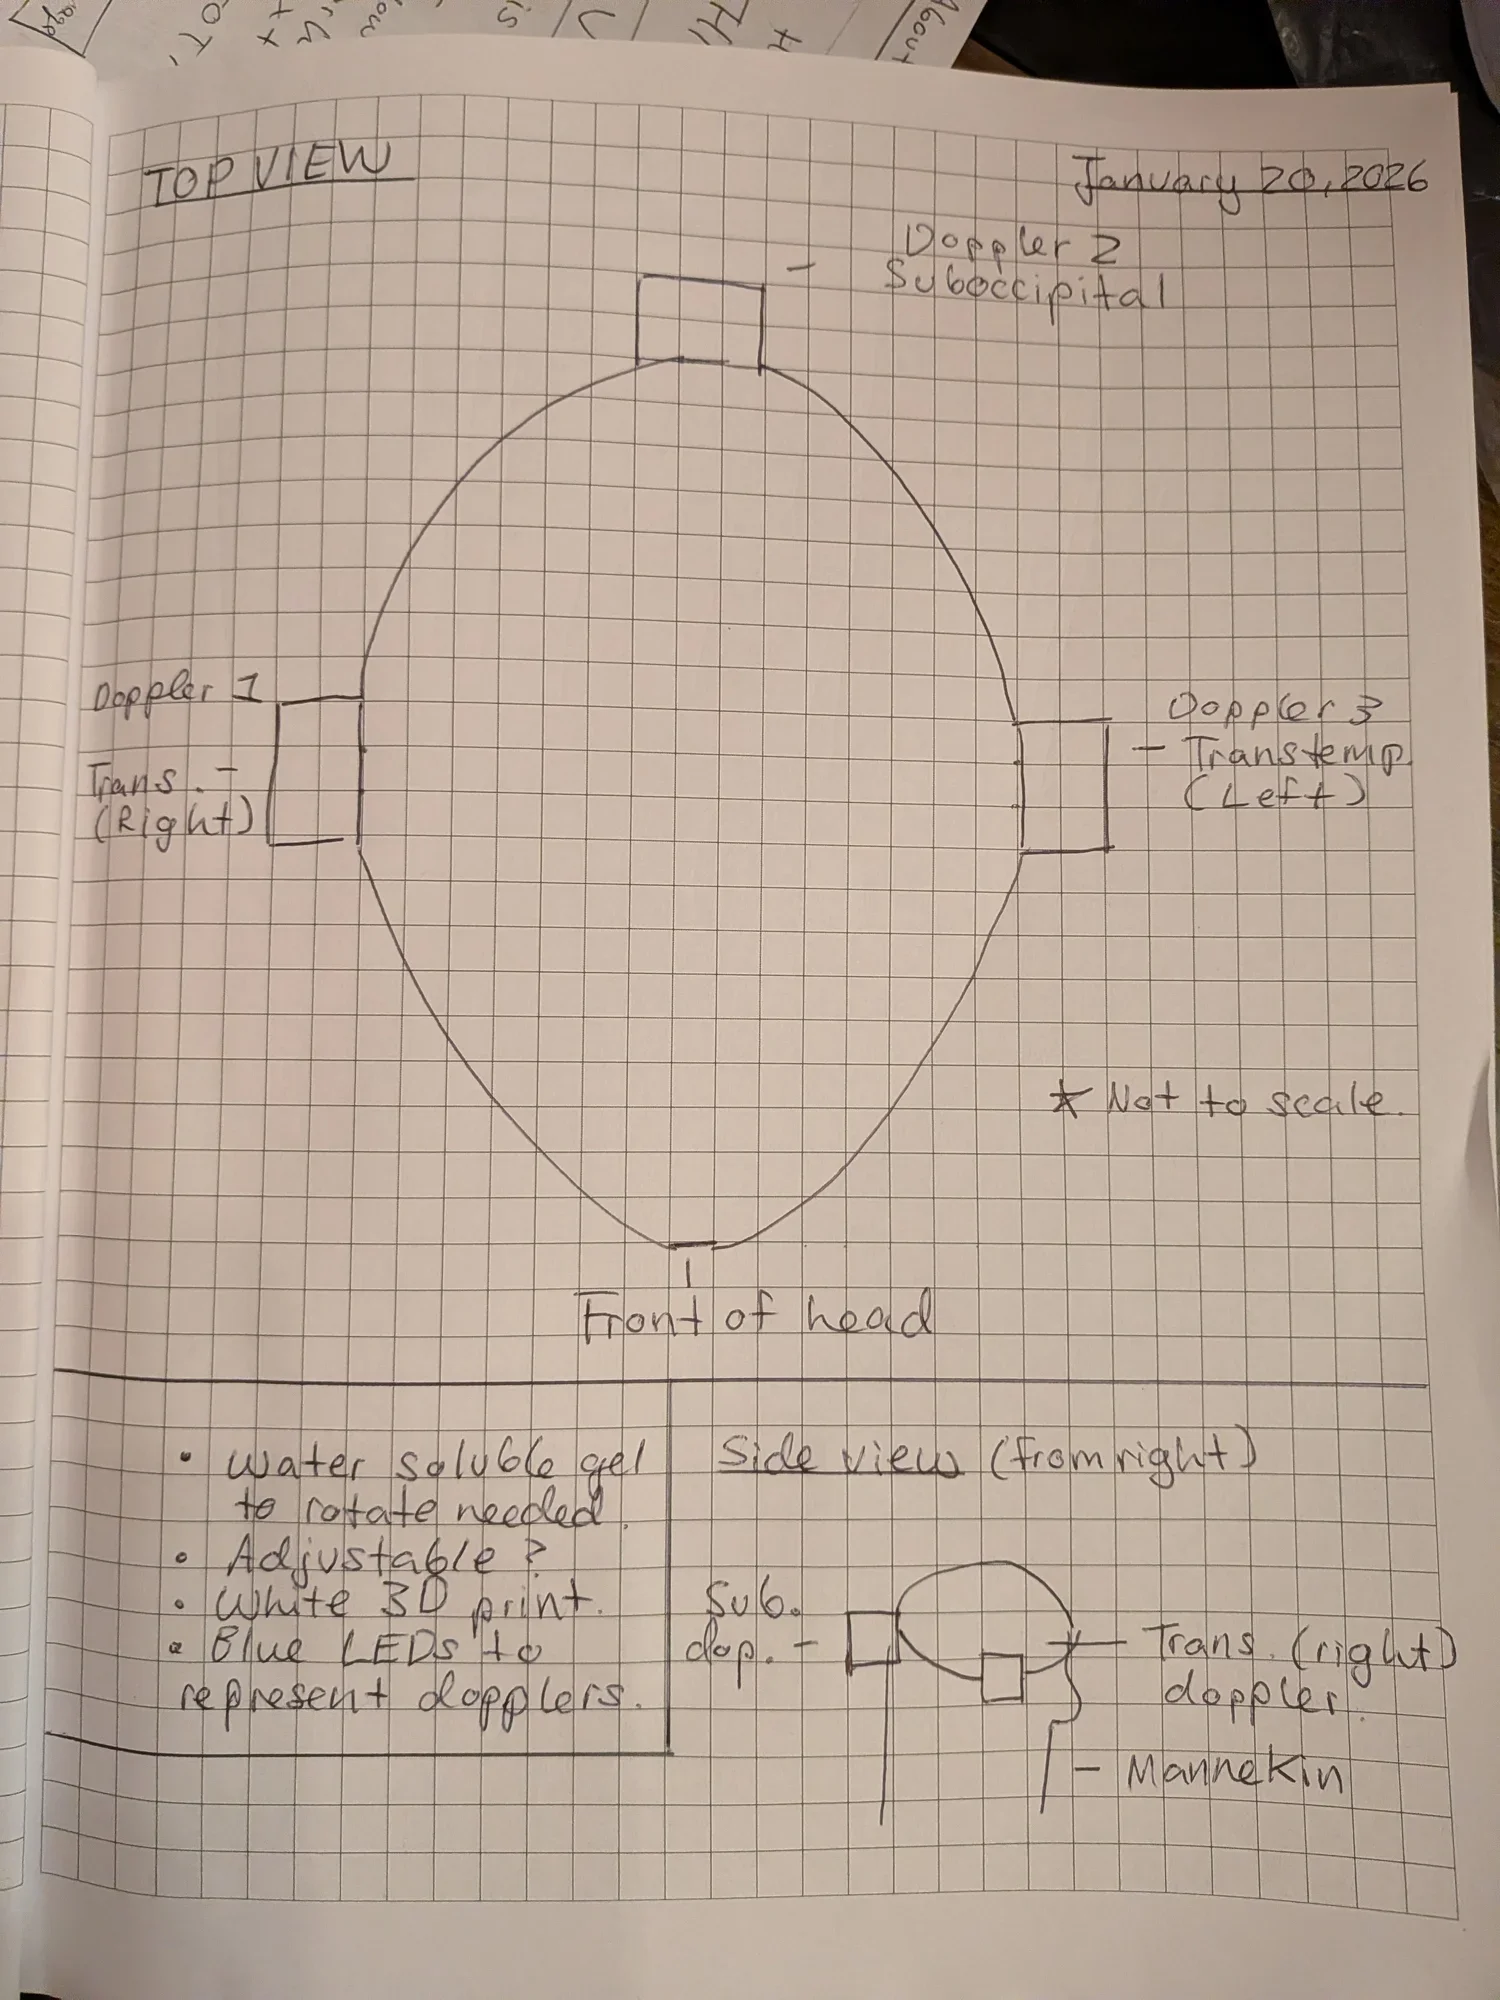 TOP VIEW
January 20, 2026
Doppler 2
- Suboccipital
Doppler 1
Trans. -
(Right)
Doppler 3
- Transtemp.
(Left)
* Not to scale.
Front of head
• Water soluble gel
to rotate needed.
• Adjustable?
• White 3D print.
• Blue LEDs to
represent dopplers.
Side view (from right)
Sub.
dop. -
Trans. (right)
doppler.
- Mannekin
About